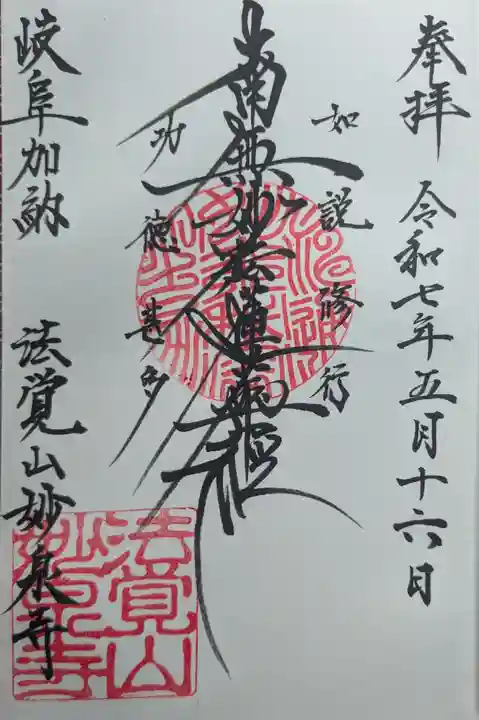 奉拝 令和七年五月十六日
如説修行
南無妙法蓮華経
功徳甚多
岐阜加納 法覚山妙泉寺
法覚山
妙泉寺